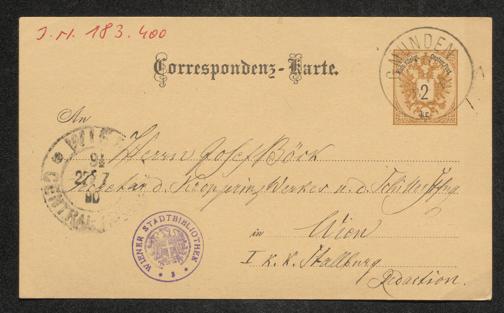 J. N. 183.400
Correspondenz-Karte.
GMUNDEN
2
kr.
An
Herrn Josef Böck
WIEN
9
27 7
90
CENTRAL
in Wien
I k. k. Stallburg
Redaction.
WIENER STADTBIBLIOTHEK